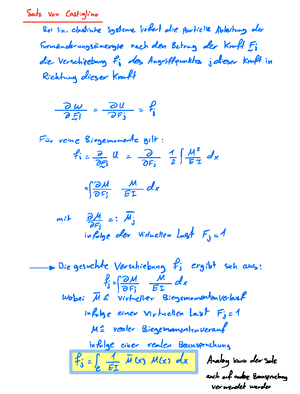 Satz von Castigliano
Bei lin. elastische Systeme liefert die partielle Ableitung der
Formänderungsenergie nach den Betrag der Kraft Fj
die Verschiebung fj des Angriffpunktes jdieser Kraft in
Richtung dieser Kraft
∂W/∂Fj = ∂U/∂Fj = fj
Für reine Biegemomente gilt:
fj = ∂/∂Fj U = ∂/∂Fj 1/2 ∫ M²/EI dx
= ∫ ∂M/∂Fj M/EI dx
mit ∂M/∂Fj =: M̄j
infolge der virtuellen Last Fj = 1
→ Die gesuchte Verschiebung fj ergibt sich aus:
fj = ∫ ∂M/∂Fj M/EI dx
Wobei M̄ ≙ virtueller Biegemomentenverlauf
infolge einer virtuellen Last Fj = 1
M ≙ realer Biegemomentenverauf
infolge einer realen Beanspruchung
fj = ∫ℓ 1/EI M̄(x) M(x) dx
Analog kann der Satz
auch auf andere Beanspruchung
verwendet werden